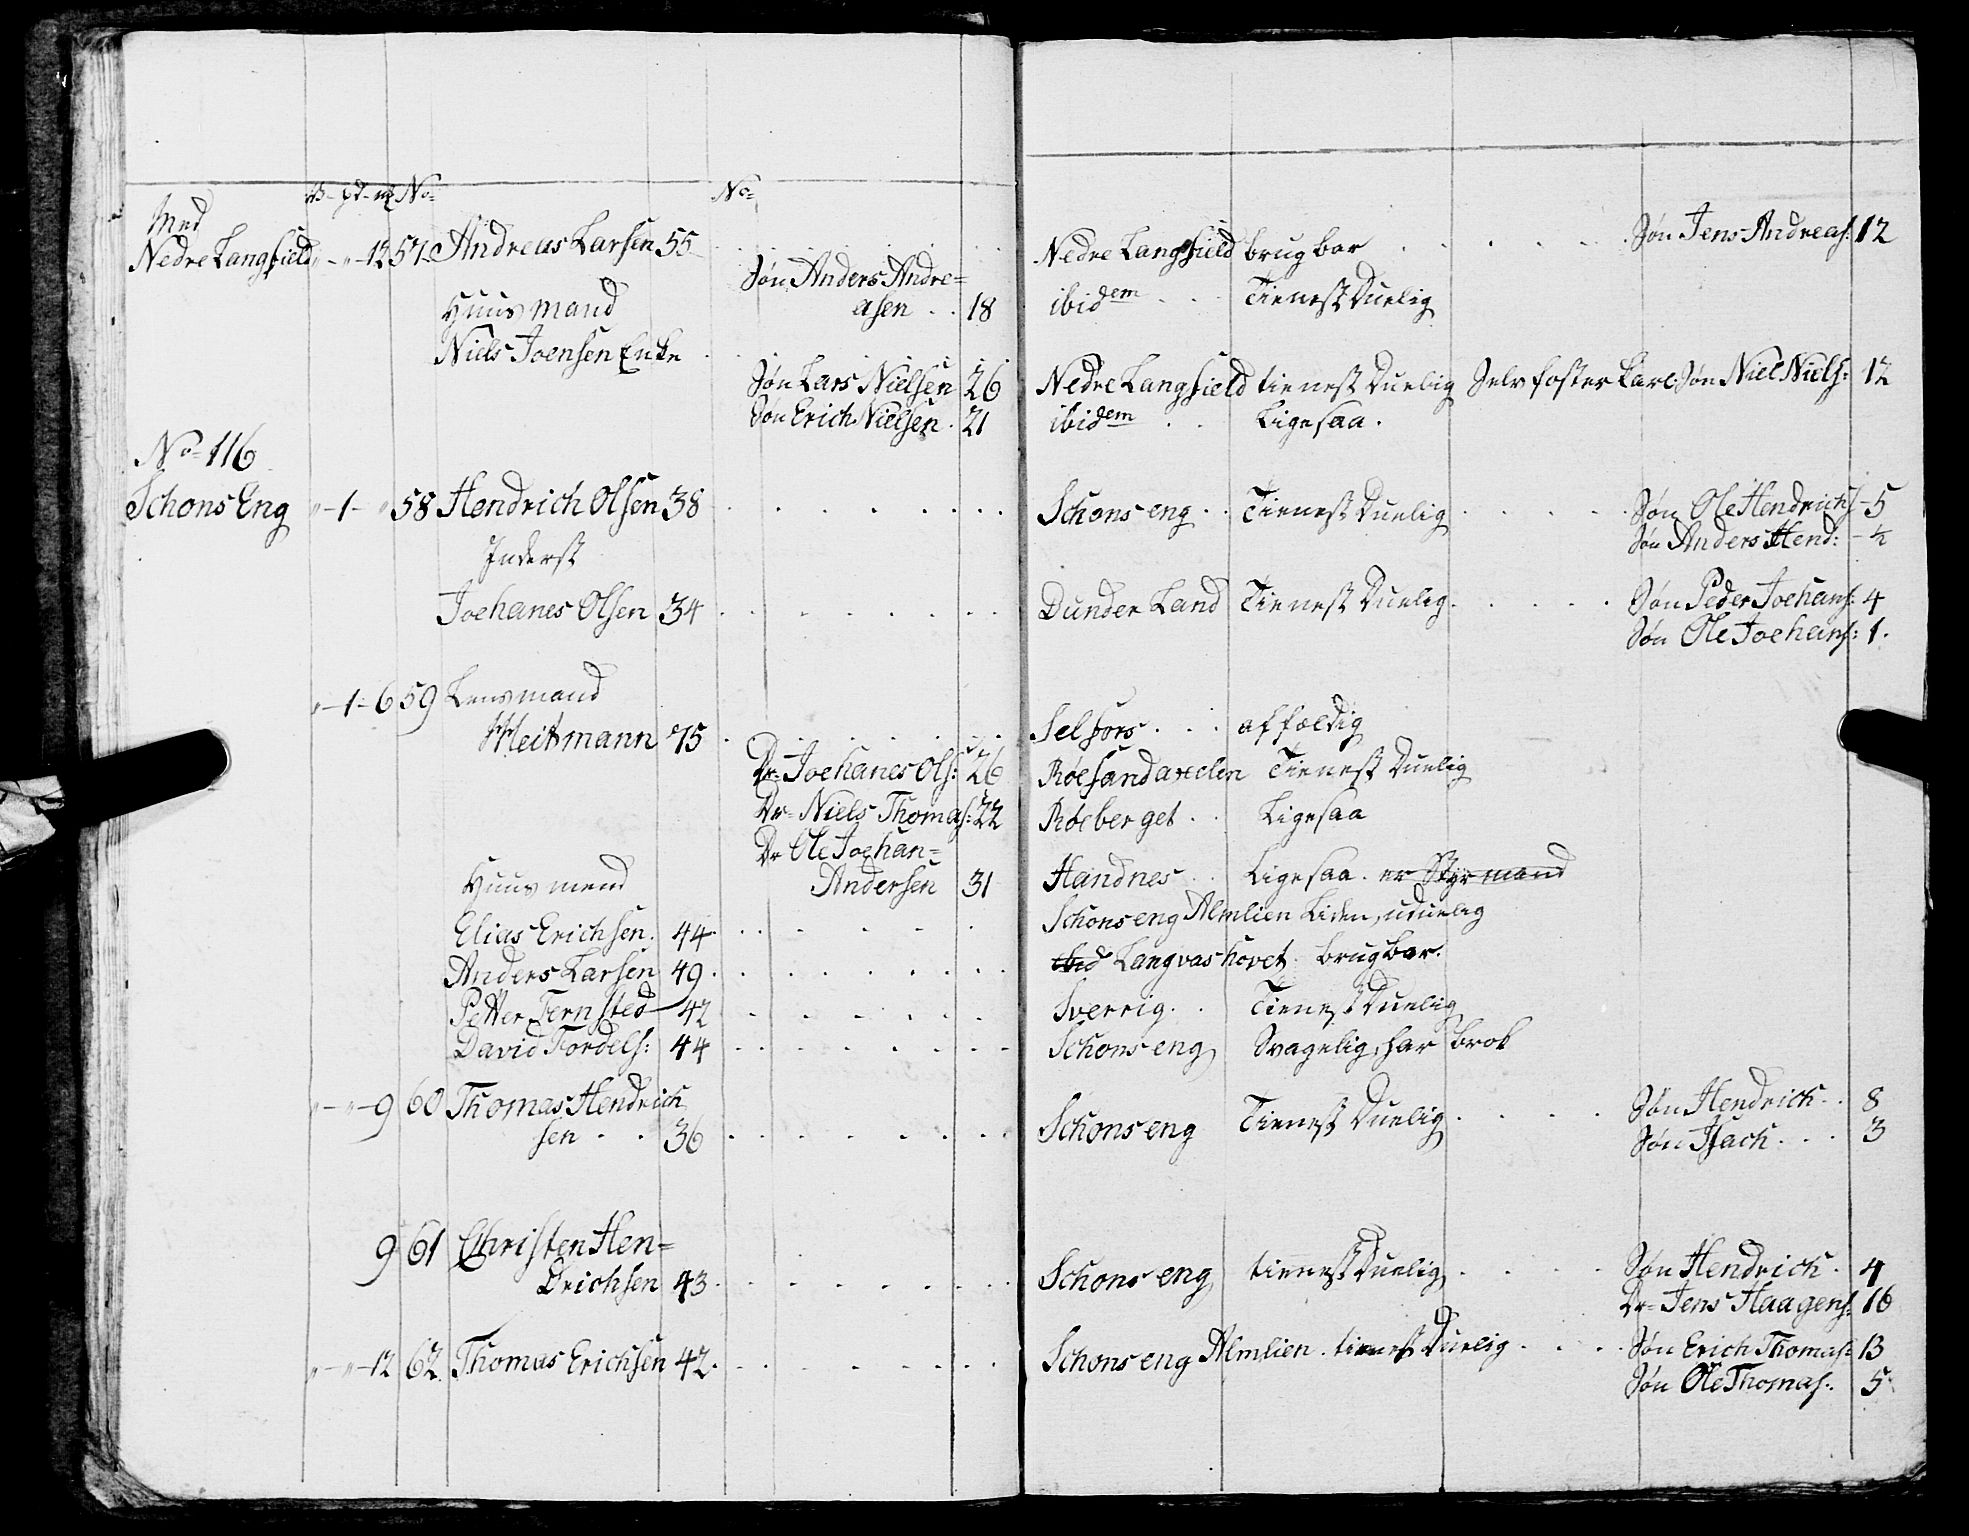 V- pd- mk No= No=
Med
Nedre Langfield „-„-12 57 Andreas Larsen 55 Nedre Langfield brugbar Søn Jens Andreas: 12
Søn Anders Andre=
Huusmand asen 18 ibidem TienestDuelig
Niels Joensen Enke
Søn Lars Nielsen 26 Nedre Langfield tienestDuelig Søn Niel Niels: 12
Søn Erich Nielsen 21 ibidem Ligesaa.
No= 116
Schons Eng „-1-„ 58 Hendrich Olsen 38 Schons eng TienestDuelig Søn Ole Hendrichs: 5
Søn Anders Hend: ½
Inderst
Joehanes Olsen 34 Dunder Land TienestDuelig Søn Peder Joehans: 4
Søn Ole Joehans: 1.
„-1-6 59 Lensmand
Meitzmann 75 Selfors affældig
Dr= Joehanes Ols: 26 Røesandaxelen TienestDuelig
Dr= Niels Thomas: 22 Røeberget Ligesaa
Dr Ole Joehan=
Huusmend Andersen 31 Handnes Ligesaa. er Styrmand
Elias Erichsen 44 Schons eng Almlien Liden, uduelig
Anders Larsen 49 ibid Langvashovet brugbar.
Petter Fernsted 42 Sverrig TienestDuelig
David Tordels: 44 Schons eng Svagelig, har brok
„-„-9 60 Thomas Hendrich
sen 36 Schons eng TienestDuelig Søn Hendrich 8
Søn Isach 3
9 61 Christen Hen=
drichsen 43 Schons eng tienestDuelig Søn Hendrich 4
Dr= Jens Haagens: 16
„-„-12 62 Thomas Erichsen 42 Schons eng Almlien tienestDuelig Søn Erich Thomas: 13
Søn Ole Thomas: 5